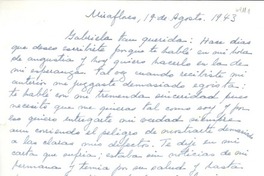 Miraflores, 19 de Agosto. 1943
Gabriela tan querida: Hace días
que deseo escribirte porque te hablé en mi hora
de angustia y hoy quiero hacerlo en la de
mi esperanza. Tal vez cuando recibiste mi
anterior me juzgaste demasiado egoísta;
te hablé con mi tremenda sinceridad pues
necesito que me quieras tal como soy y por
eso quiero entregarte mi verdad siempre
aun corriendo el peligro de mostrarte demasiado
a las claras mis defectos. Te dejé en mi
carta que sufría; estaba sin noticias de mi
hermana y temía por su salud y hasta